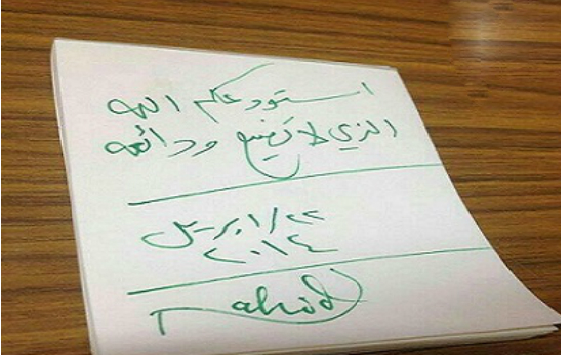 استودعكم الله
الذي لا تضيع ودائعه
٢٢/ابريل
٢٠١٤
Nahod